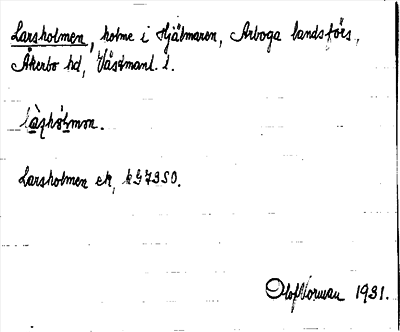 Larsholmen, holme i Hjälmaren, Arboga landsförs.,
Åkerbo hd, Västmanl. l.
Làs̨hòl̨mɘn.
Larsholmen ek, kG7350.
Olof Norman 1931.